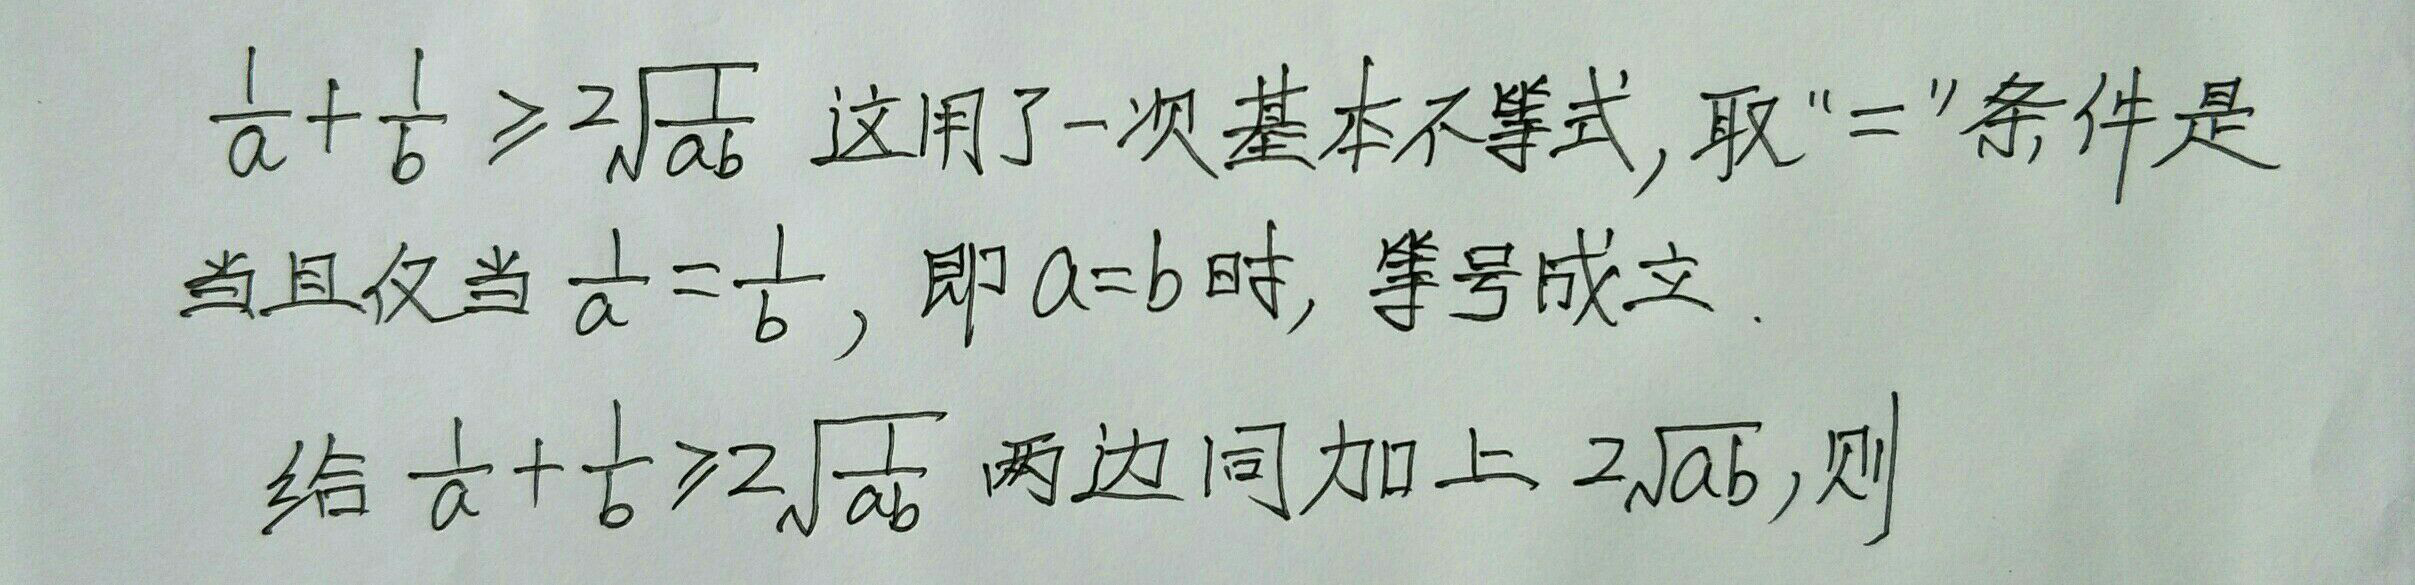 1/a + 1/b ≥ 2√(1/ab) 这用了一次基本不等式,取“=”条件是
当且仅当 1/a = 1/b , 即 a=b 时, 等号成立.
给 1/a + 1/b ≥ 2√(1/ab) 两边同加上 2√ab, 则